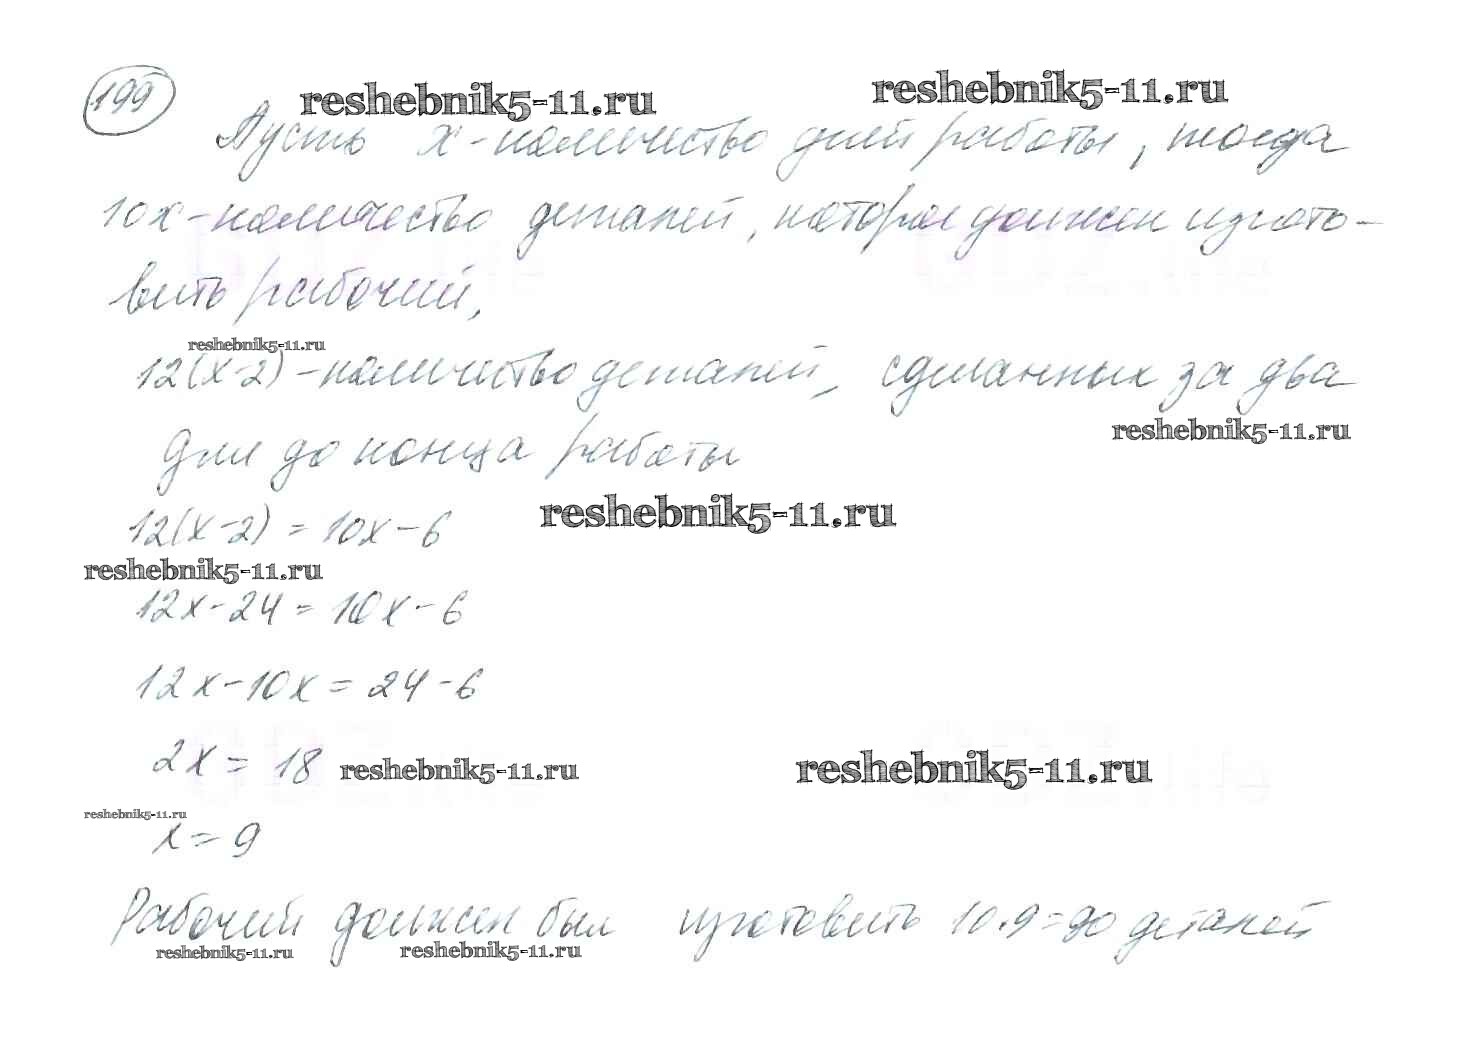 199
reshebnik5-11.ru reshebnik5-11.ru
Пусть x - количество дней работы, тогда
10x - количество деталей, которое должен изгото-
вить рабочий,
reshebnik5-11.ru
12(x-2) - количество деталей, сделанных за два
reshebnik5-11.ru
дня до конца работы
reshebnik5-11.ru
12(x-2) = 10x - 6
reshebnik5-11.ru
12x - 24 = 10x - 6
12x - 10x = 24 - 6
2x = 18 reshebnik5-11.ru reshebnik5-11.ru
reshebnik5-11.ru
x = 9
Рабочий должен был изготовить 10·9=90 деталей
reshebnik5-11.ru reshebnik5-11.ru